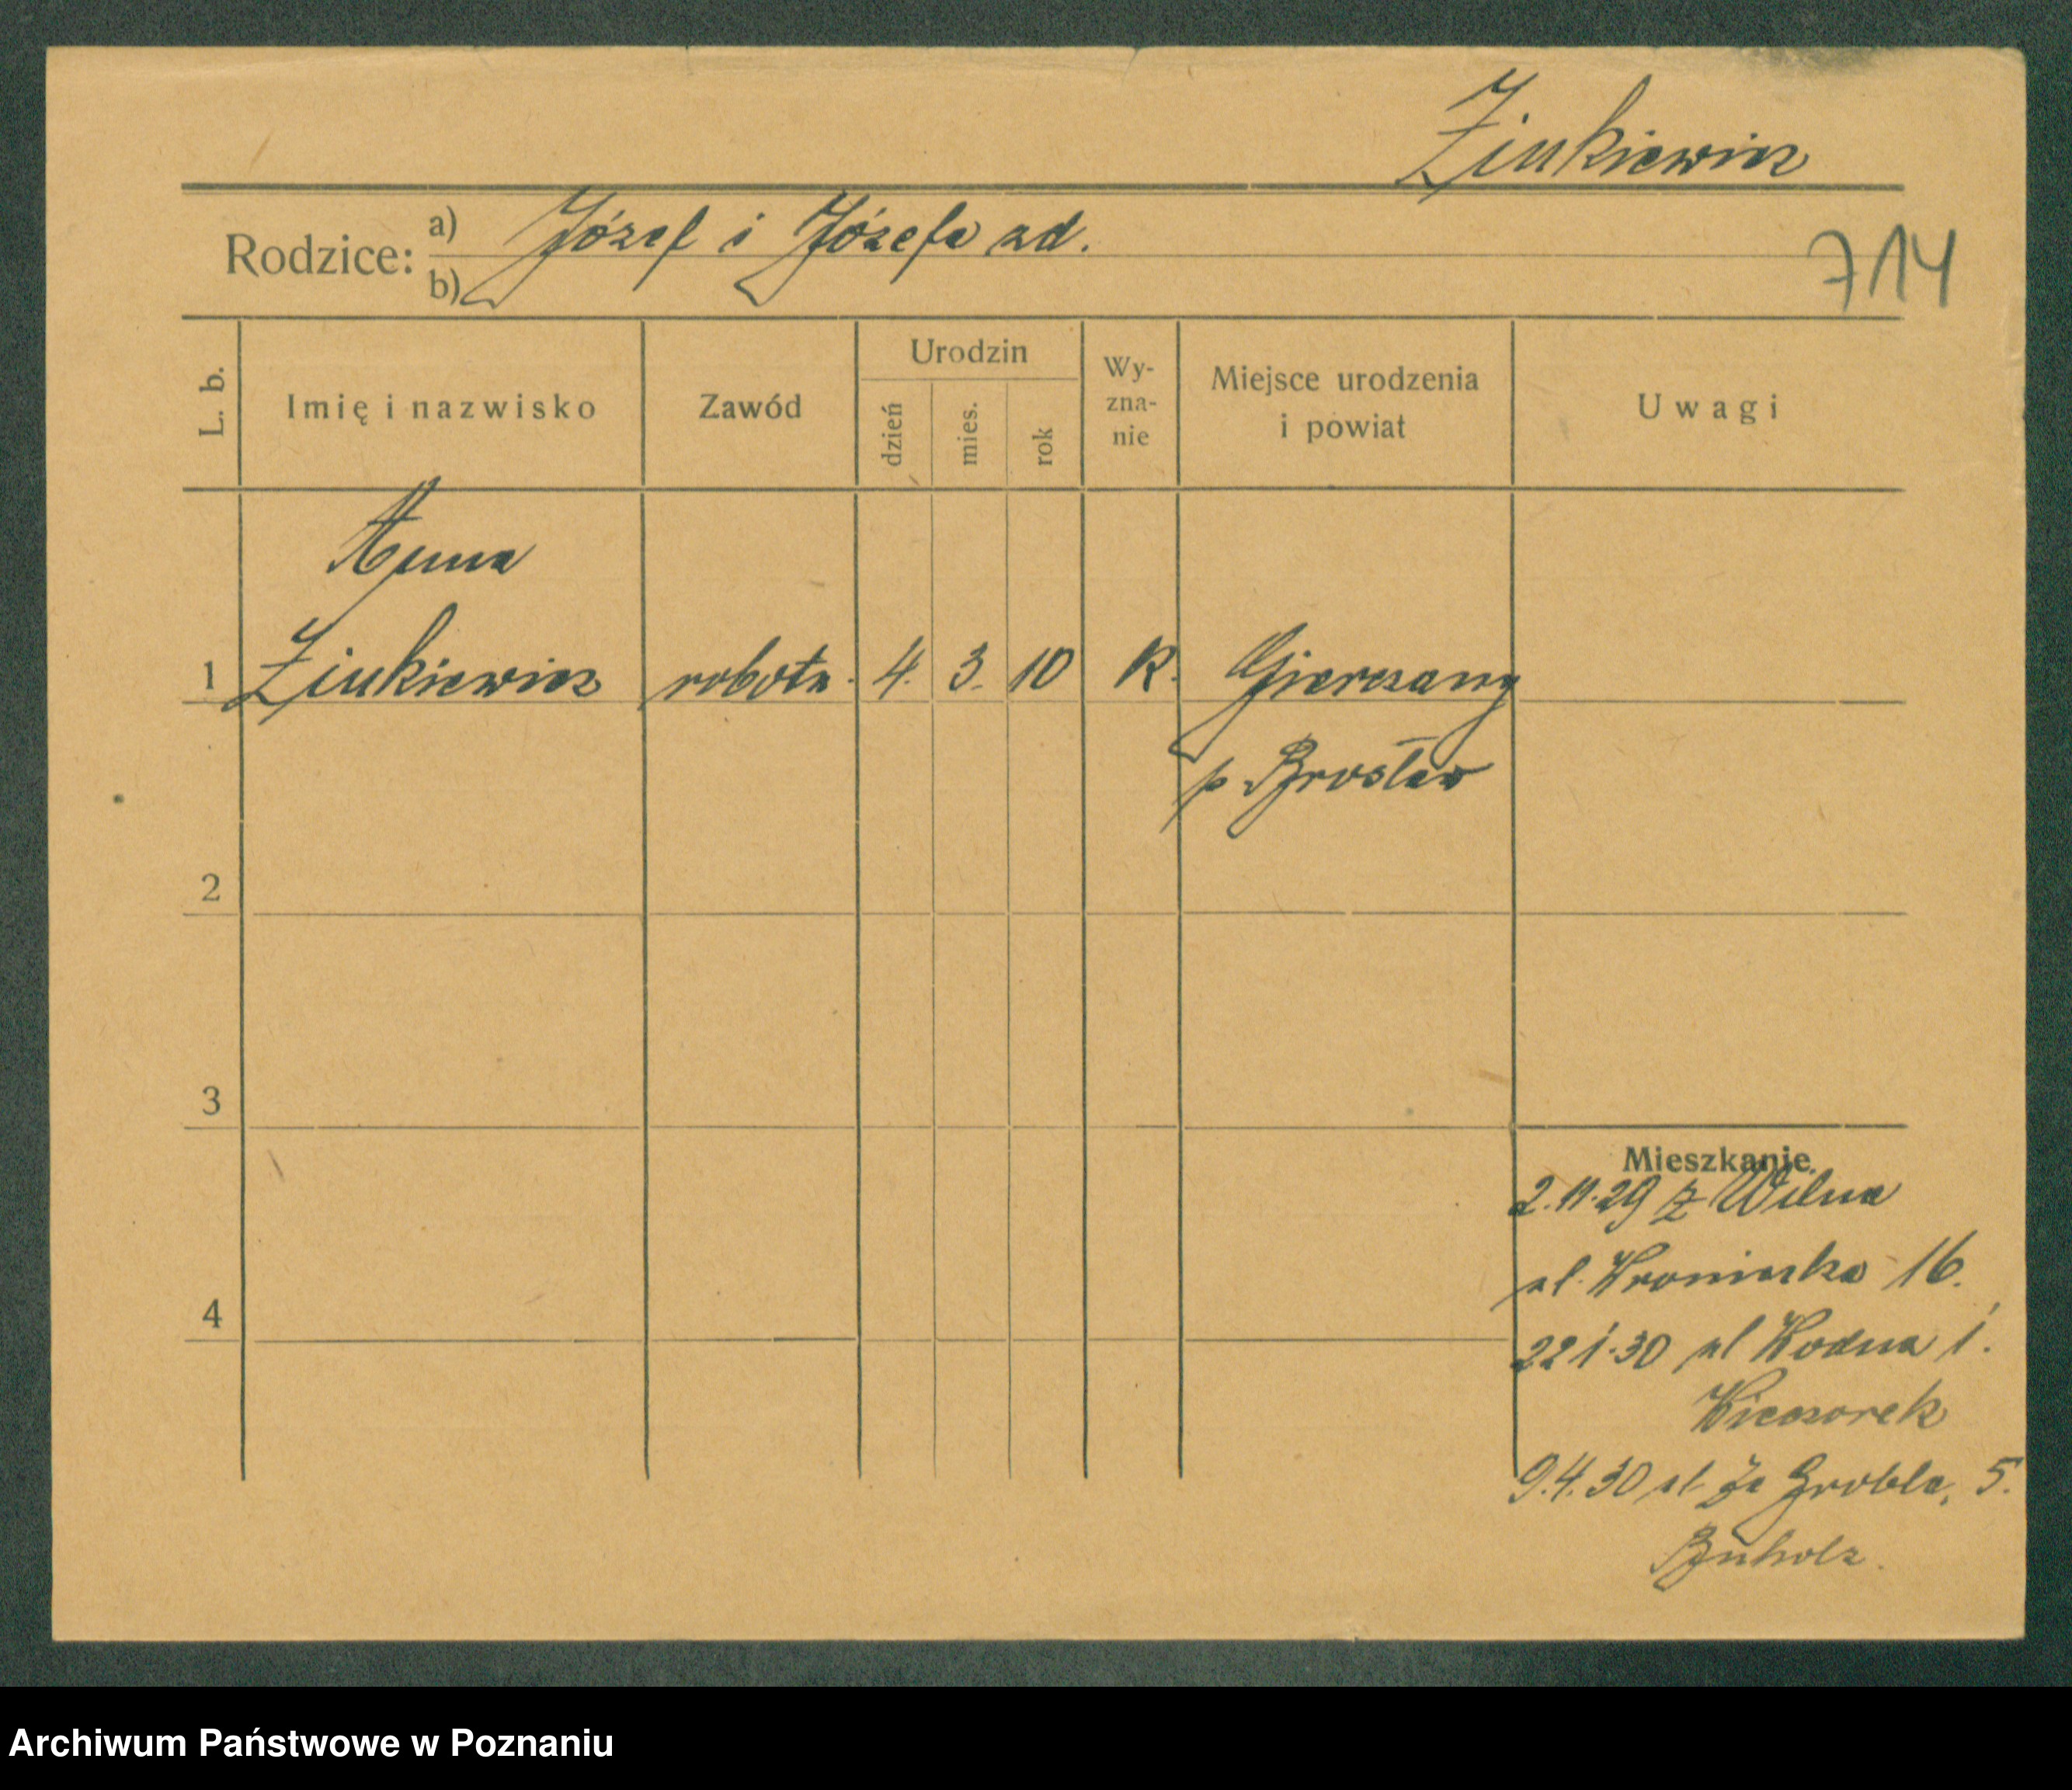 Ziukiewicz
Rodzice: a) Józef i Józefa zd.
b)
714
L. b.
Imię i nazwisko
Zawód
Urodzin
dzień
mies.
rok
Wy-
zna-
nie
Miejsce urodzenia
i powiat
Uwagi
Anna
1 Ziukiewicz robotn. 4. 3. 10 K.
p Brosław
2
3
4
Mieszkanie
2.11.29 z Wilna
ul. Wroniecka 16.
22 1.30 ul Wodna 1.
Wieczorek
9.4.30 ul. Za Groblą, 5.
Buholz.
Archiwum Państwowe w Poznaniu